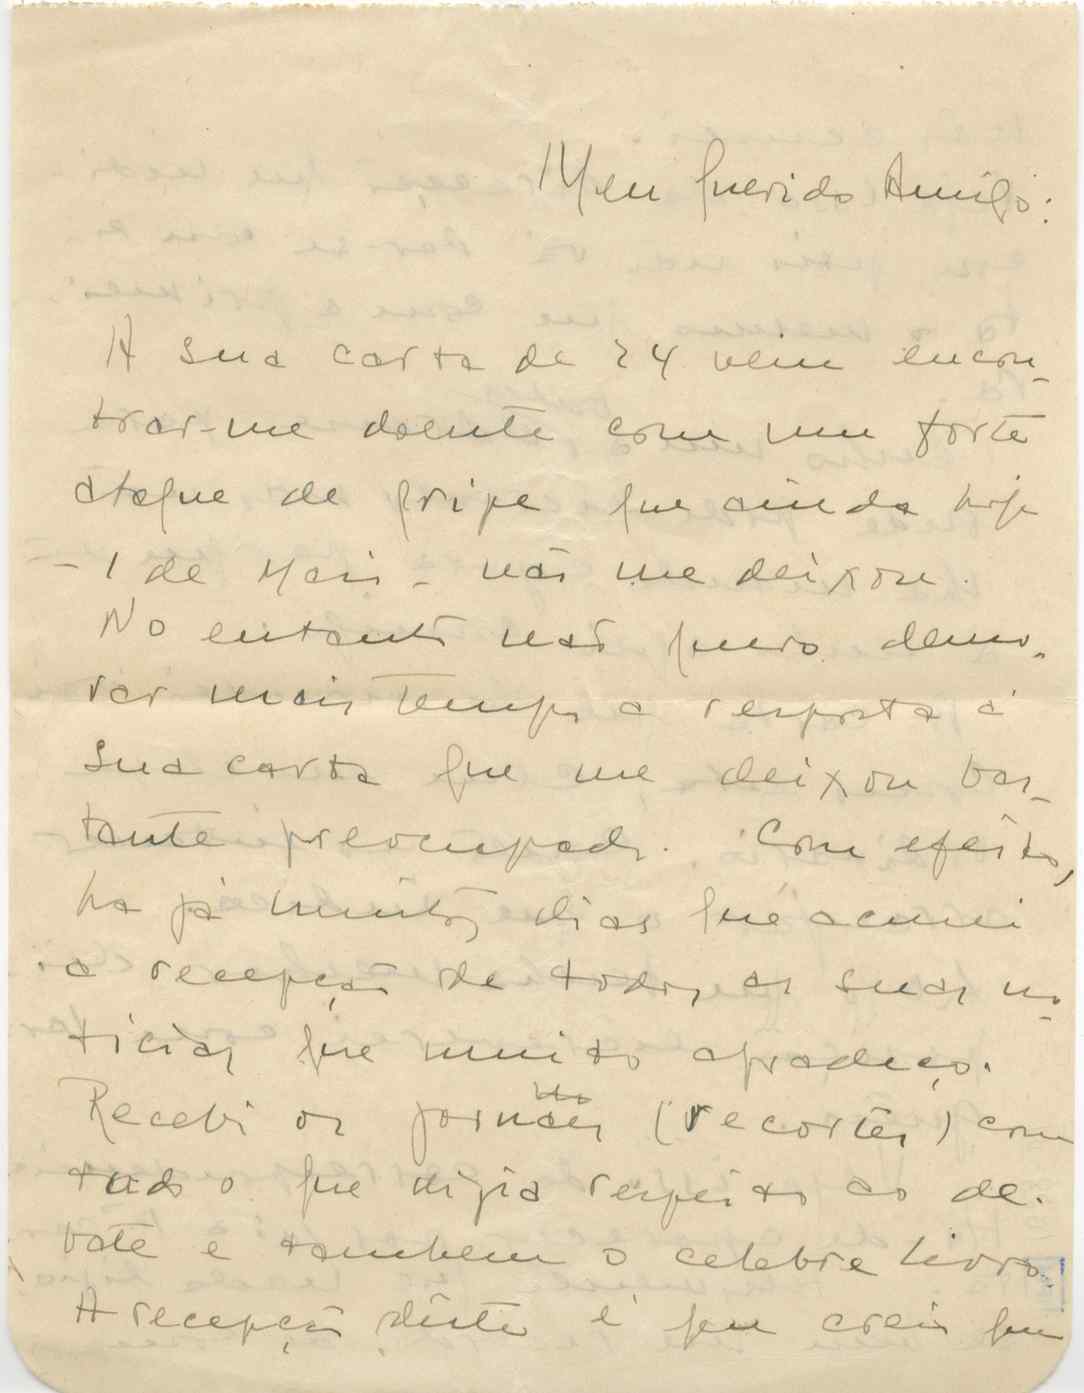 Meu Querido Amigo:
A sua carta de 24 veiu encon-
trar-me doente com um forte
ataque de gripe que ainda hoje
- 1 de Maio - não me deixou.
No entanto não quero demo-
rar mais tempo a resposta á
sua carta que me deixou bas-
tante preocupado. Com efeito,
ha já muitos dias que acusei
a recepção de todas as suas no-
ticias que muito agradeço.
Recebi os jornaes (recortes) com
tudo o que dizia respeito ao de-
bate e tambem o celebre livro.
A recepção deste é que creio que